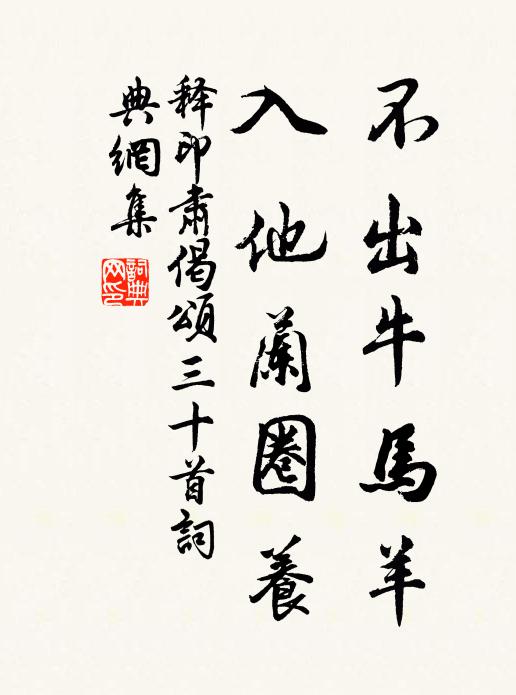 不出牛馬羊
入他蘭圈養
释印肅偈頌三十首詞
典網集
詞典网印